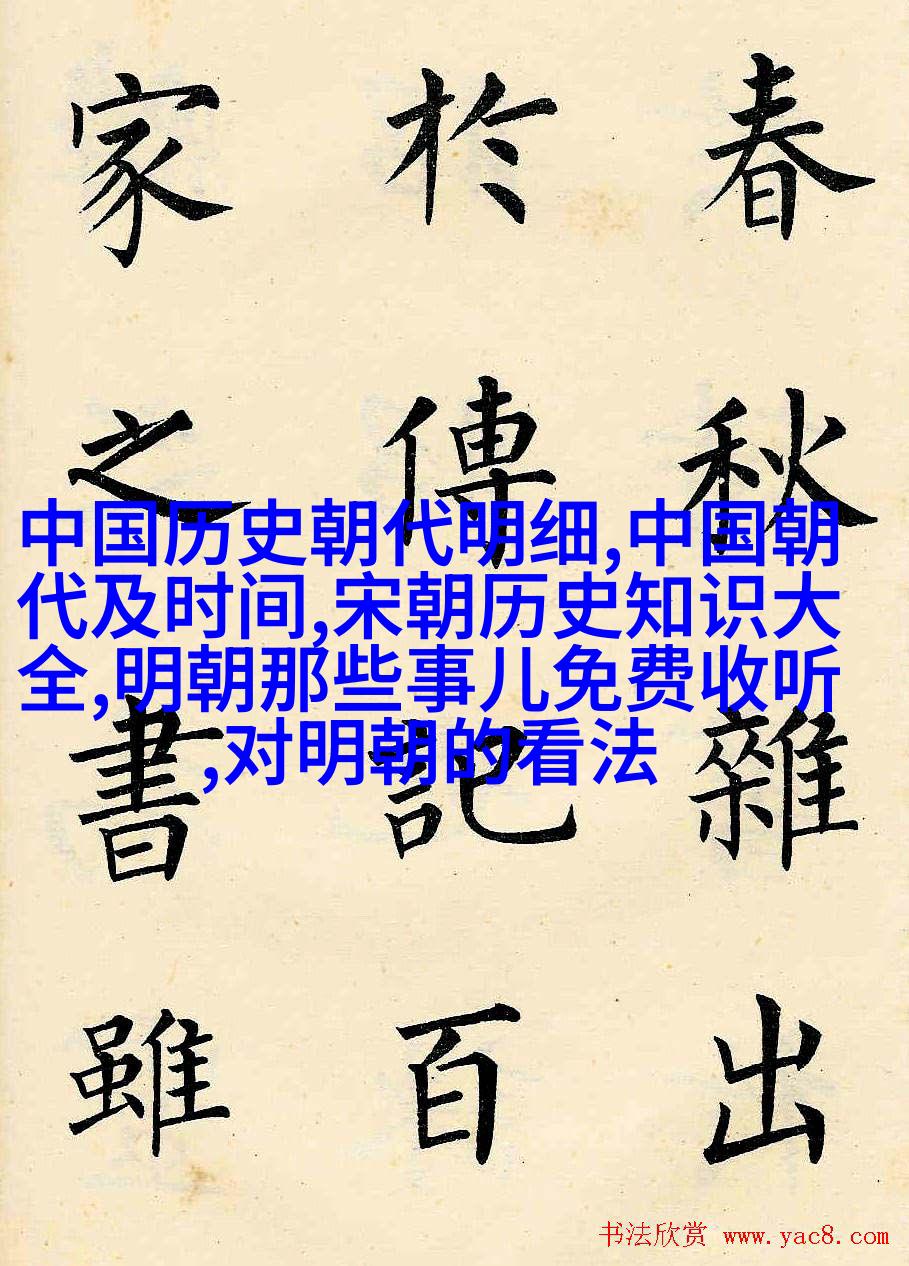 春秋雜出
於傳記百
家之書雖
中国历史朝代明细,中国朝
代及时间,宋朝历史知识大
全,明朝那些事儿免费收听
,对明朝的看法
书法欣赏 www.yac8.com